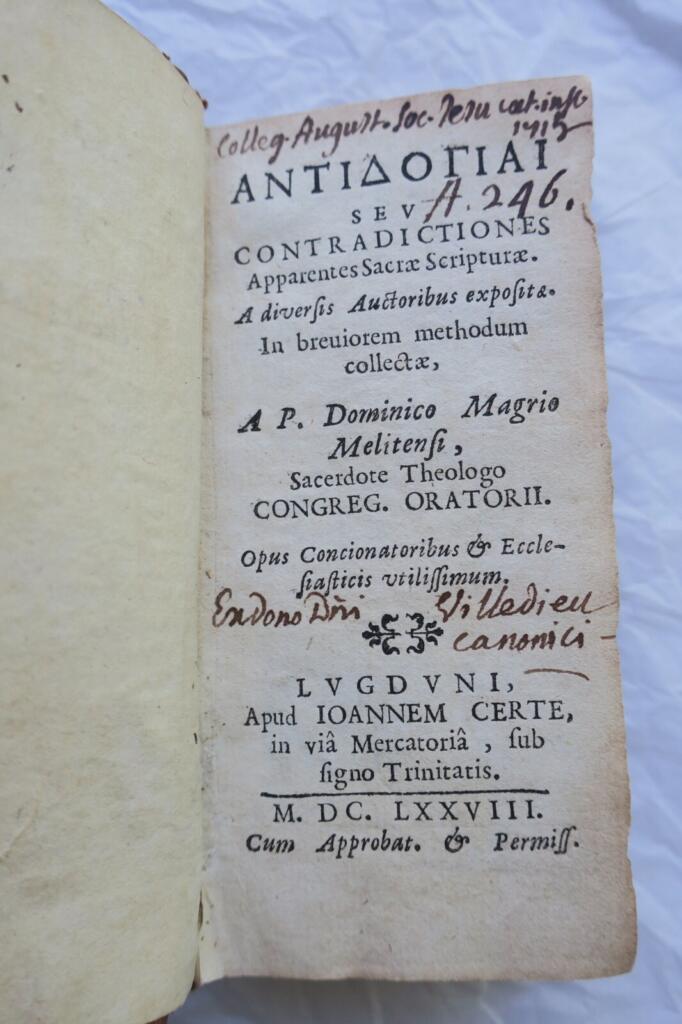 Colleg. August. Soc. Jesu cat. insc.
1715
ΑΝΤΙΔΟΓΙΑΙ
SEV
A. 246.
CONTRADICTIONES
Apparentes Sacræ Scripturæ.
A diverſis Auctoribus expoſitæ.
In breuiorem methodum
collectæ,
A P. Dominico Magrio
Melitenſi,
Sacerdote Theologo
CONGREG. ORATORII.
Opus Concionatoribus & Eccle-
ſiaſticis vtiliſſimum.
Ex dono Dñi Villedieu
canonici
LVGDVNI,
Apud IOANNEM CERTE,
in viâ Mercatoriâ, ſub
ſigno Trinitatis.
M. DC. LXXVIII.
Cum Approbat. & Permiſſ.